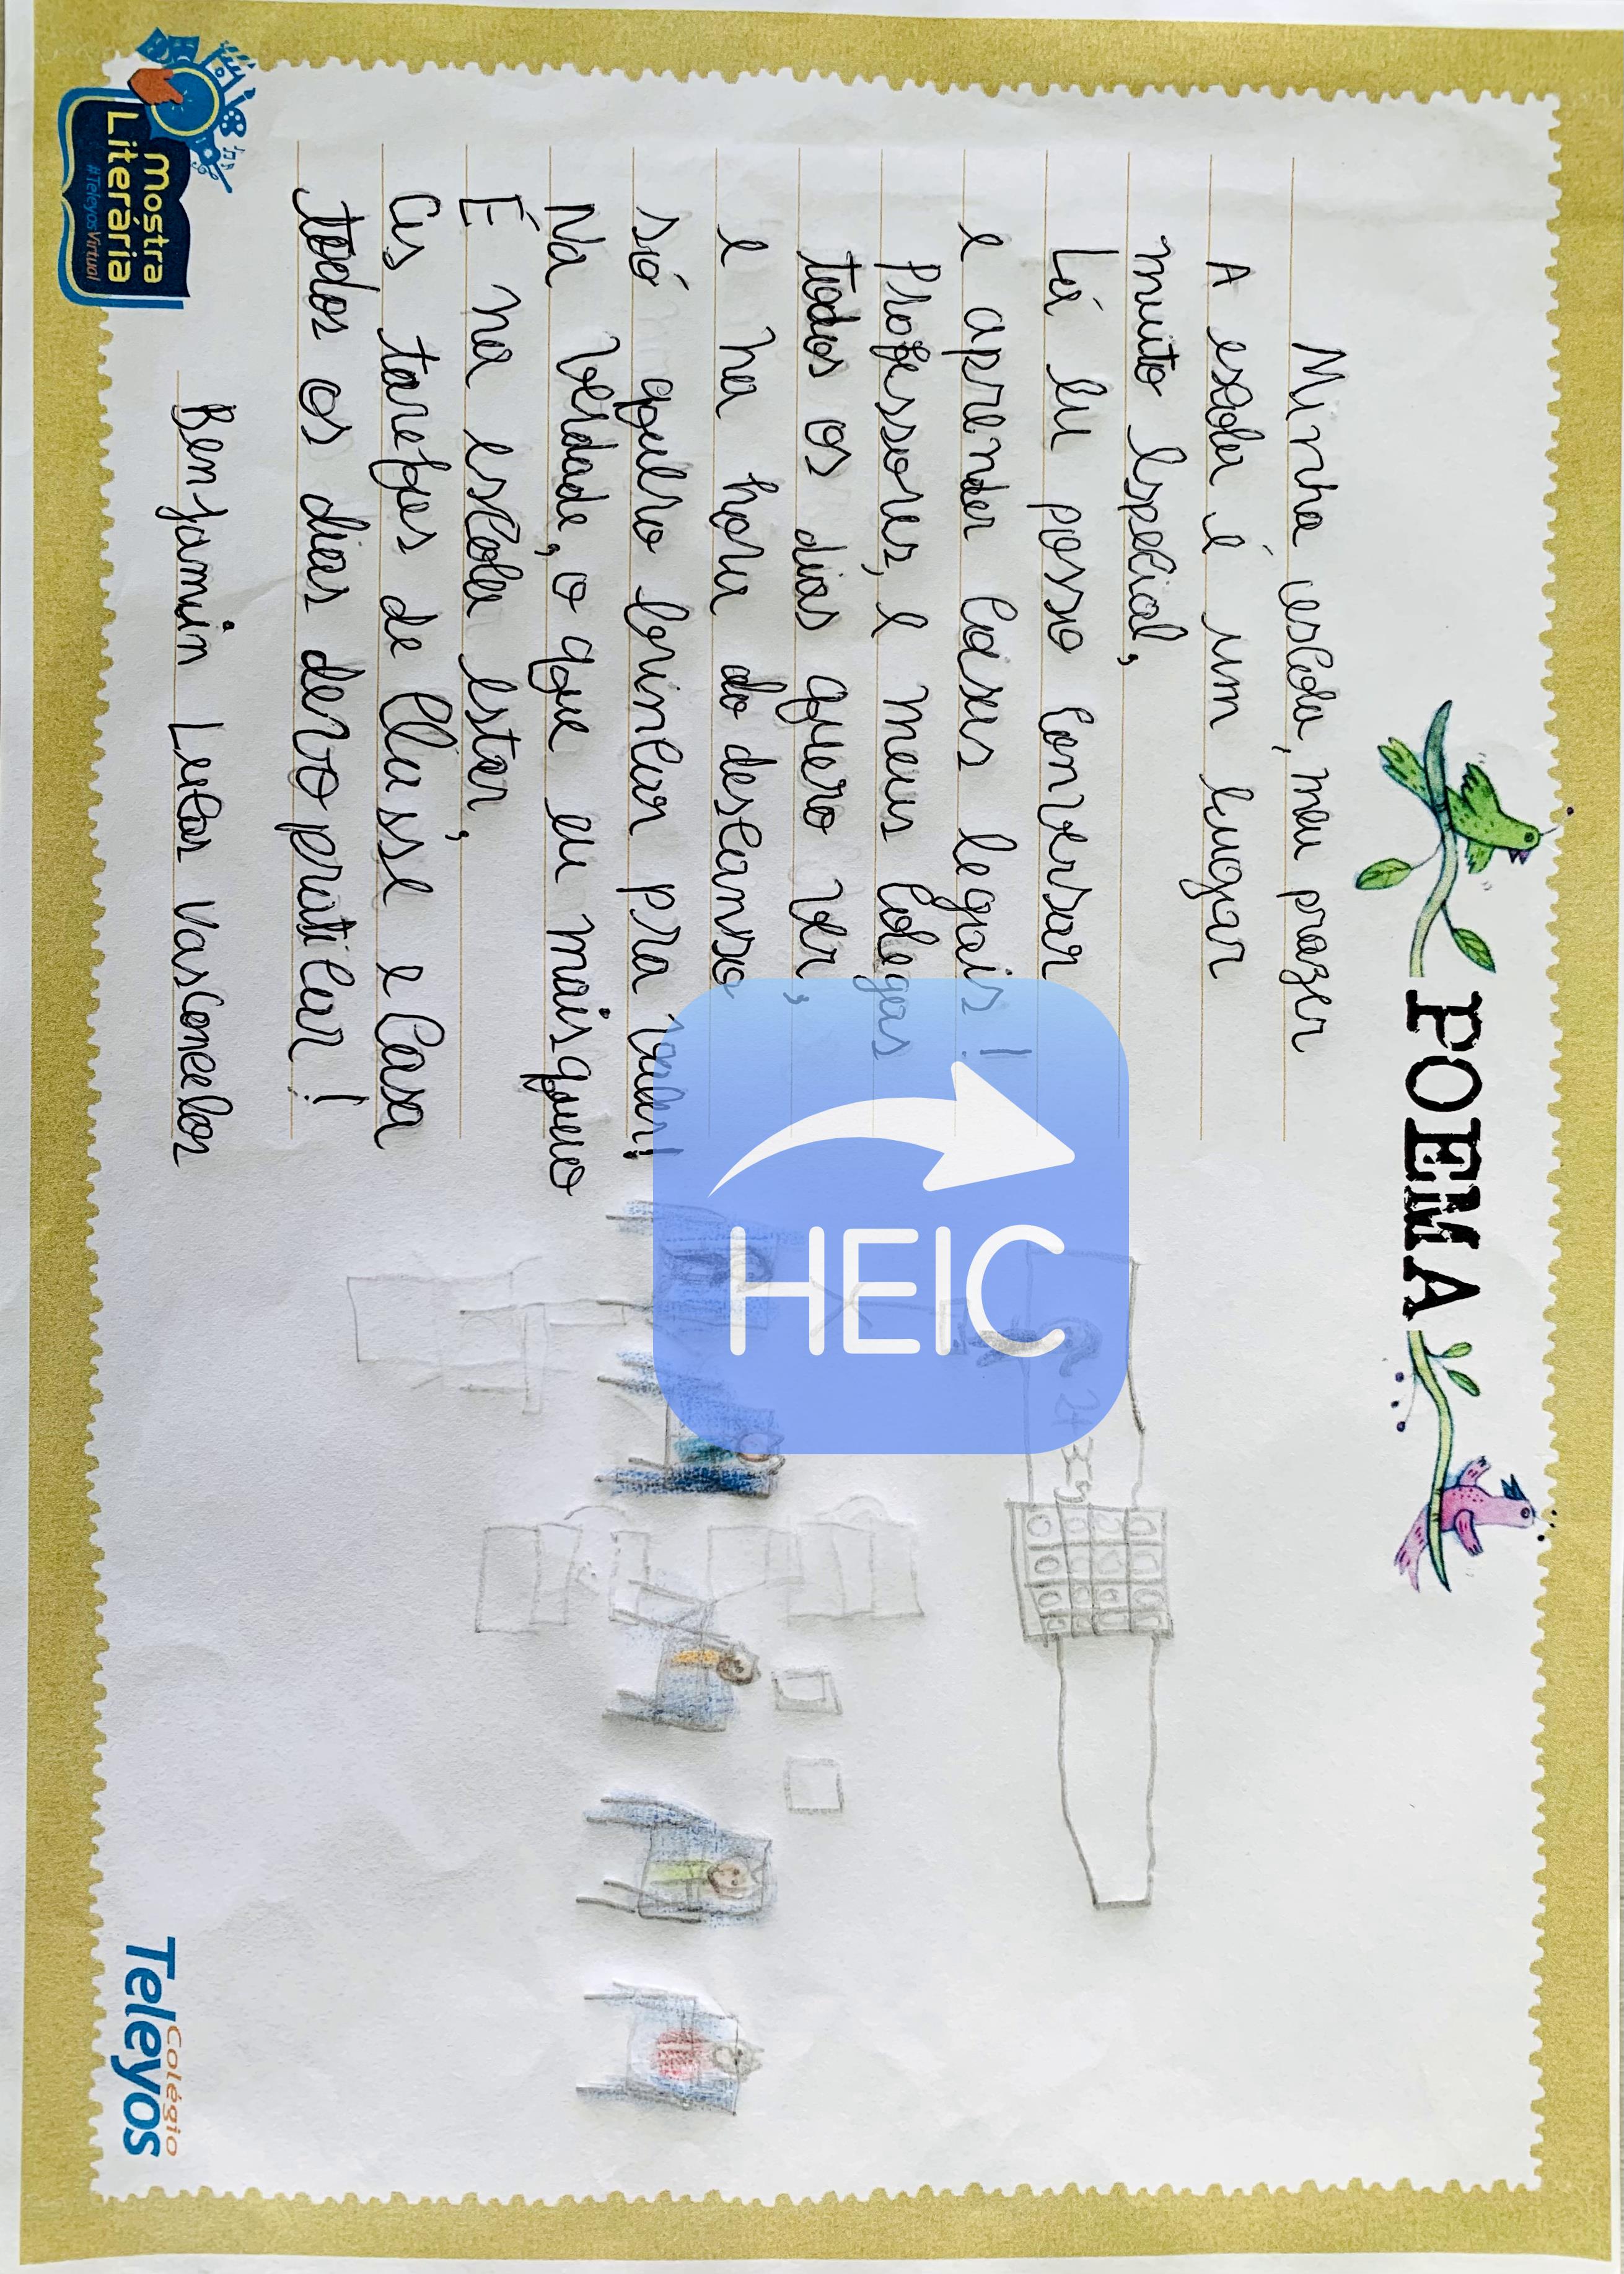 POEMA
Minha escola, meu prazer
A escola é um lugar
muito especial,
Lá eu posso conversar
e aprender coisas legais!
Professores, e meus colegas
todos os dias quero ver,
e na hora do descanso
só quero brincar pra valer!
Na verdade, o que eu mais quero
É na escola estar,
As tarefas de classe e casa
todos os dias devo praticar!
Benjamin Lucas Vasconcelos
HEIC
Mostra
Literária
#TeleyosVirtual
Colégio
Teleyos